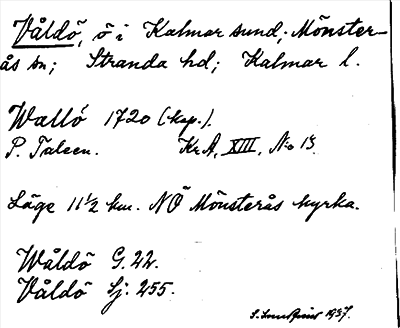 Våldö, ö i Kalmar sund; Mönster-
ås sn; Stranda hd; Kalmar l.
Wallö 1720 (kop.).
P. Taleen. Kr A, XIII, No 13.
Läge 11½ km. NÖ Mönsterås kyrka.
Wåldö G. 22.
Våldö Sj. 255.
1937.